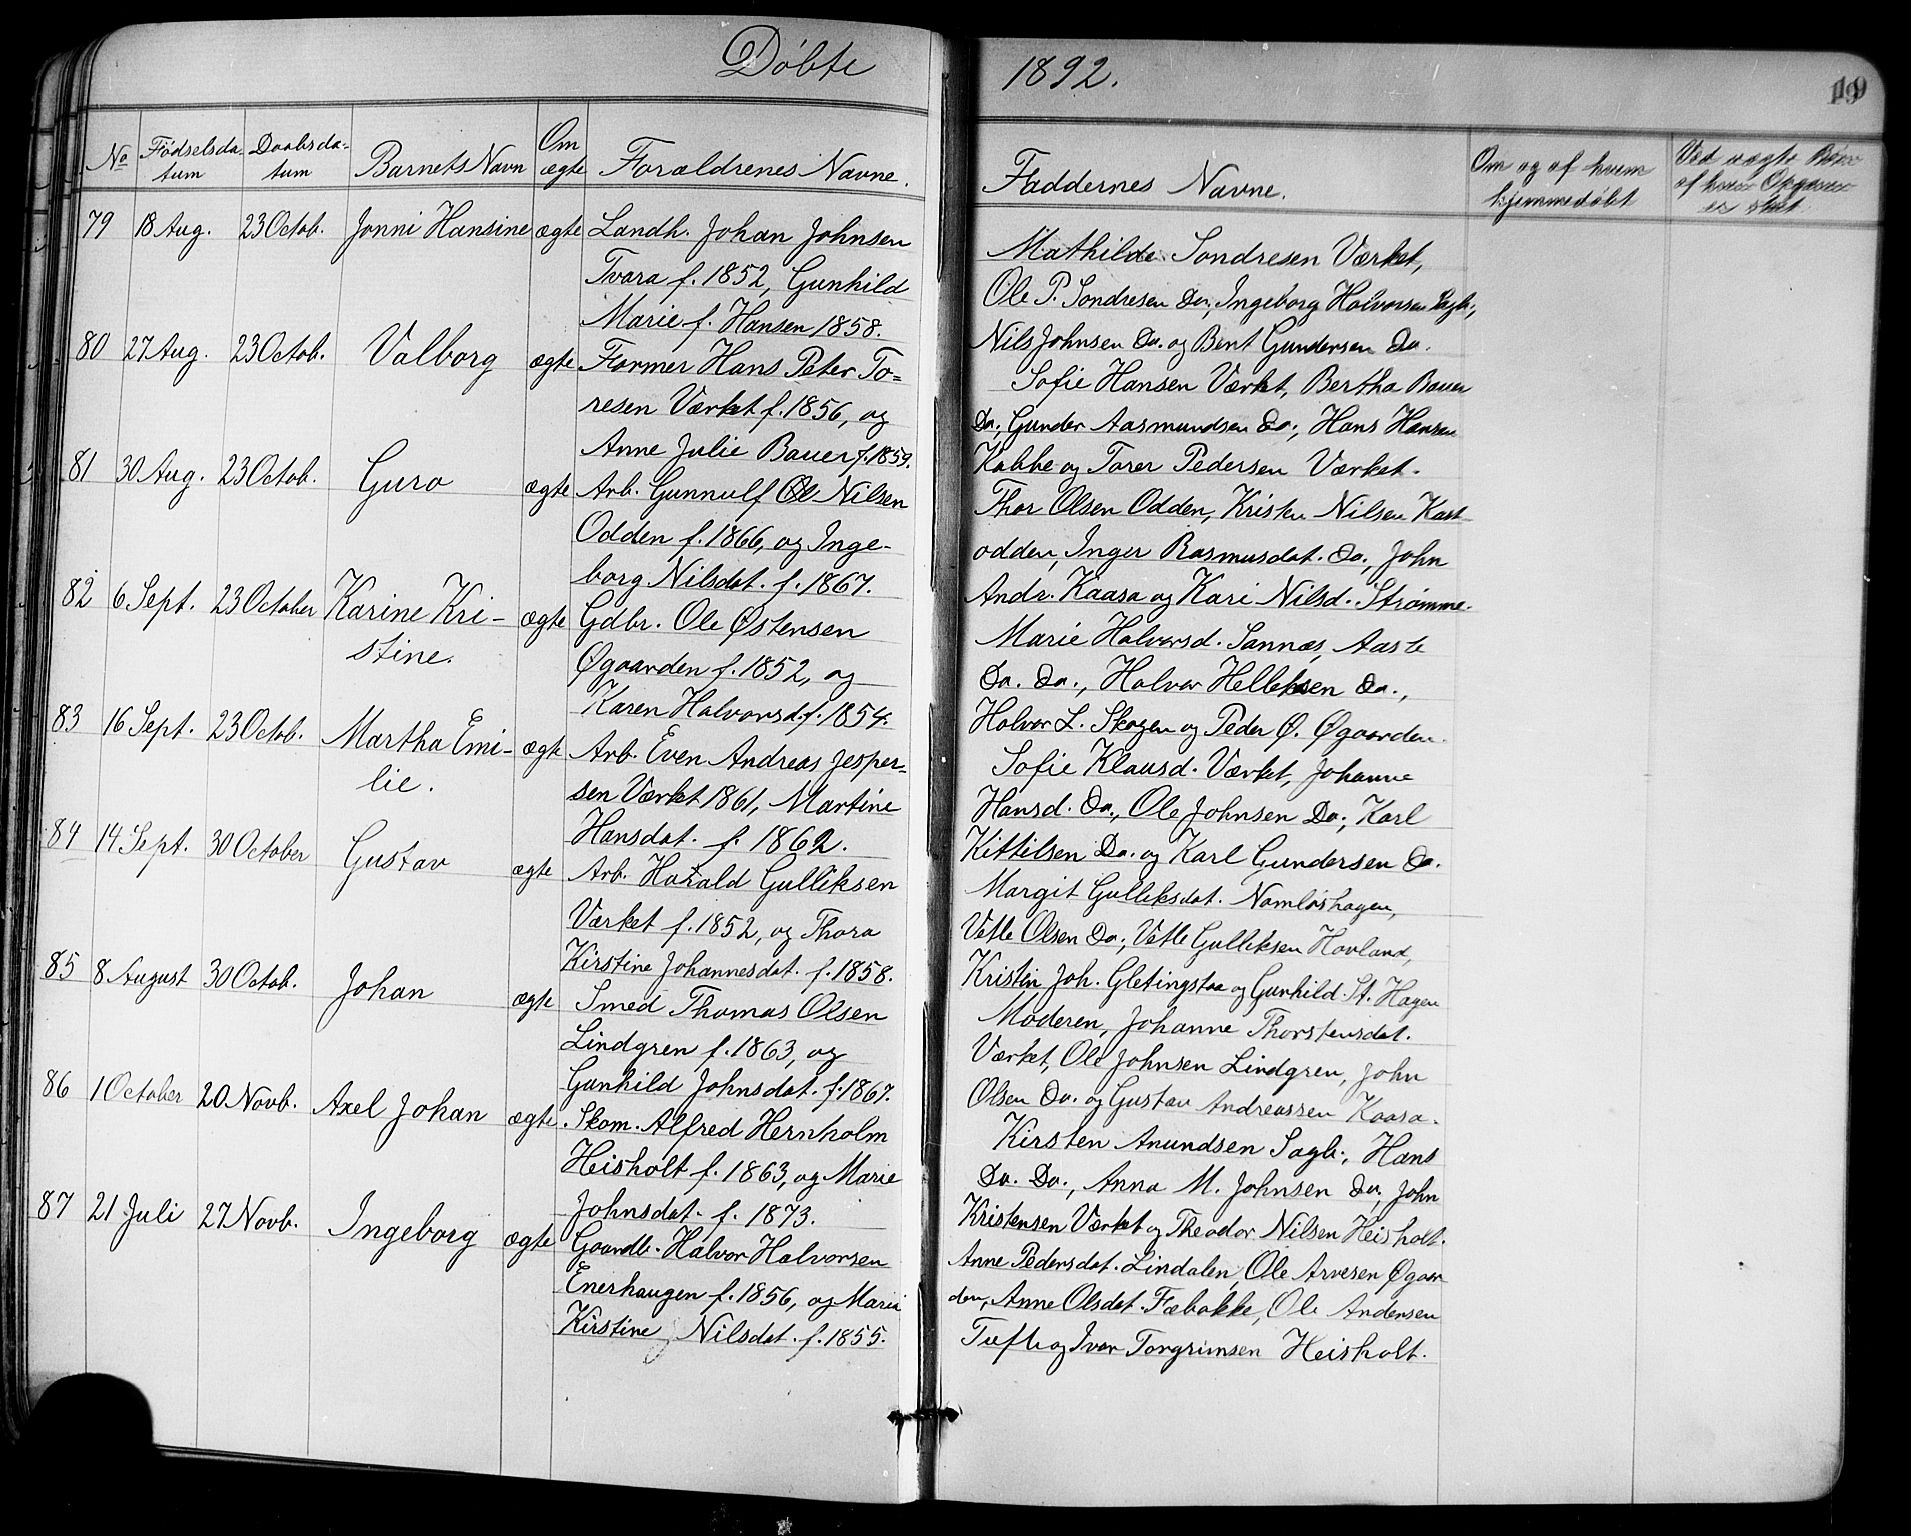 Døbte 1892.
19
No Fødselsda- Daabsda- Barnets Navn Om Forældrenes Navne. Faddernes Navne. Om og af hvem Ved uægte Børn
tum tum ægte hjemmedøbt af hvem Opgaven
er skeet
79 18 Aug. 23 Octob. Jonni Hansine ægte Landh. Johan Johnsen
Tvara f. 1852, Gunhild
Marie f. Hansen 1858.
80 27 Aug. 23 Octob. Valborg ægte Former Hans Peter To=
resen Værket f. 1856, og
Anne Julie Bauer f. 1859.
81 30 Aug. 23 Octob. Guro ægte Arb. Gunnulf Øl Nilsen
Odden f. 1866, og Inge-
borg Nilsdat. f. 1867.
82 6 Sept. 23 October Karine Kri- ægte Gdbr. Ole Østensen
stine. Øgaarden f. 1852, og
Karen Halvorsd. f. 1854.
83 16 Sept. 23 Octob. Martha Emi- ægte Arb. Even Andreas Jesper-
lie. sen Værket 1861, Martine
Hansdat. f. 1862.
84 14 Sept. 30 October Gustav ægte Arb. Harald Gulliksen
Værket f. 1852, og Thora
Kirstine Johannesdat. f. 1858.
85 8 August 30 Octob. Johan ægte Smed Thomas Olsen
Lindgren f. 1863, og
Gunhild Johnsdat. f. 1867.
86 1 October 20 Novb. Axel Johan ægte Skom. Alfred Hernholm
Heisholt f. 1863, og Marie
Johnsdat. f. 1873.
87 21 Juli 27 Novb. Ingeborg ægte Gaardb. Halvor Halvorsen
Enerhaugen f. 1856, og Maria
Kirstine Nilsdat. f. 1855.
Mathilde Sondresen Værket,
Ole P. Sondresen Do., Ingeborg Halvorsen Sagb.,
Nils Johnsen Do. og Bent Gundersen Do.
Sofie Hansen Værket, Bertha Bauer
Do., Gunder Aasmundsen Do., Hans Hansen
Kabbe og Torer Pedersen Værket.
Thor Olsen Odden, Nilsen Kast-
odden, Inger Rasmusdat. Do., John
Andr. Kaasa og Kari Nilsd. Strømme.
Marie Halvorsd. Sannæs, Aaste
Do. Do., Halvor Helleksen Do.,
Halvor L. Skogen og Peder Ø. Øgaarden.
Sofie Klausd. Værket, Johanne
Hansd. Do., Ole Johnsen Do., Karl
Kittilsen Do. og Karl Gundersen Do.
Margit Gulleksdat. Namløshagen,
Vetle Olsen Do., Vetle Gulliksen Hovland,
Kristin Joh. og Gunhild St. Hagen
Moderen, Johanne Thorstensdat.
Værket, Ole Johnsen Lindgren, John
Olsen Do. og Gustav Andreassen Kaasa.
Kirsten Anundsen Sagb., Hans
Do. Do., Anna M. Johnsen Do., John
Kristensen Værket og Theodor Nilsen Heisholt.
Anne Pedersdat. Lindalen, Ole Arvesen Øgaar-
den, Anne Olsdat. Fæbakke, Ole Andersen
Tufte og Ivar Torgrimsen Heisholt.